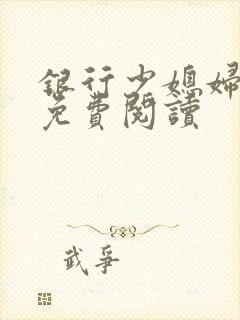 銀行少媳婦
免費閱讀
武爭